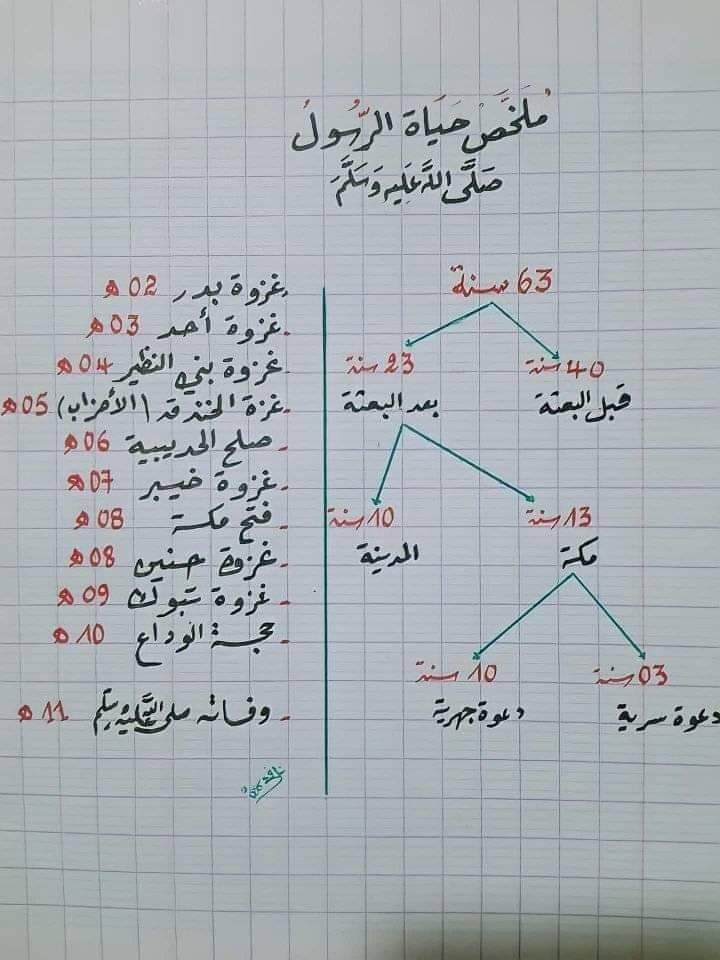 مُلَخَّصُ حَيَاة الرّسُولُ
صَلَّى اللهُ عَلَيهِ وَسَلَّمَ
63 سنة
40 سنة
23 سنة
قبل البعثة
بعد البعثة
13 سنة
10 سنة
مكة
المدينة
03 سنة
10 سنة
دعوة سرية
دعوة جهرية
- غزوة بدر 02 هـ
- غزوة أحد 03 هـ
- غزوة بني النظير 04 هـ
- غزة الخندق (الأحزاب) 05 هـ
- صلح الحديبية 06 هـ
- غزوة خيبر 07 هـ
- فتح مكة 08 هـ
- غزوة حنين 08 هـ
- غزوة تبوك 09 هـ
- حجة الوداع 10 هـ
- وفاته صلى اللَّه عليه وسلم 11 هـ